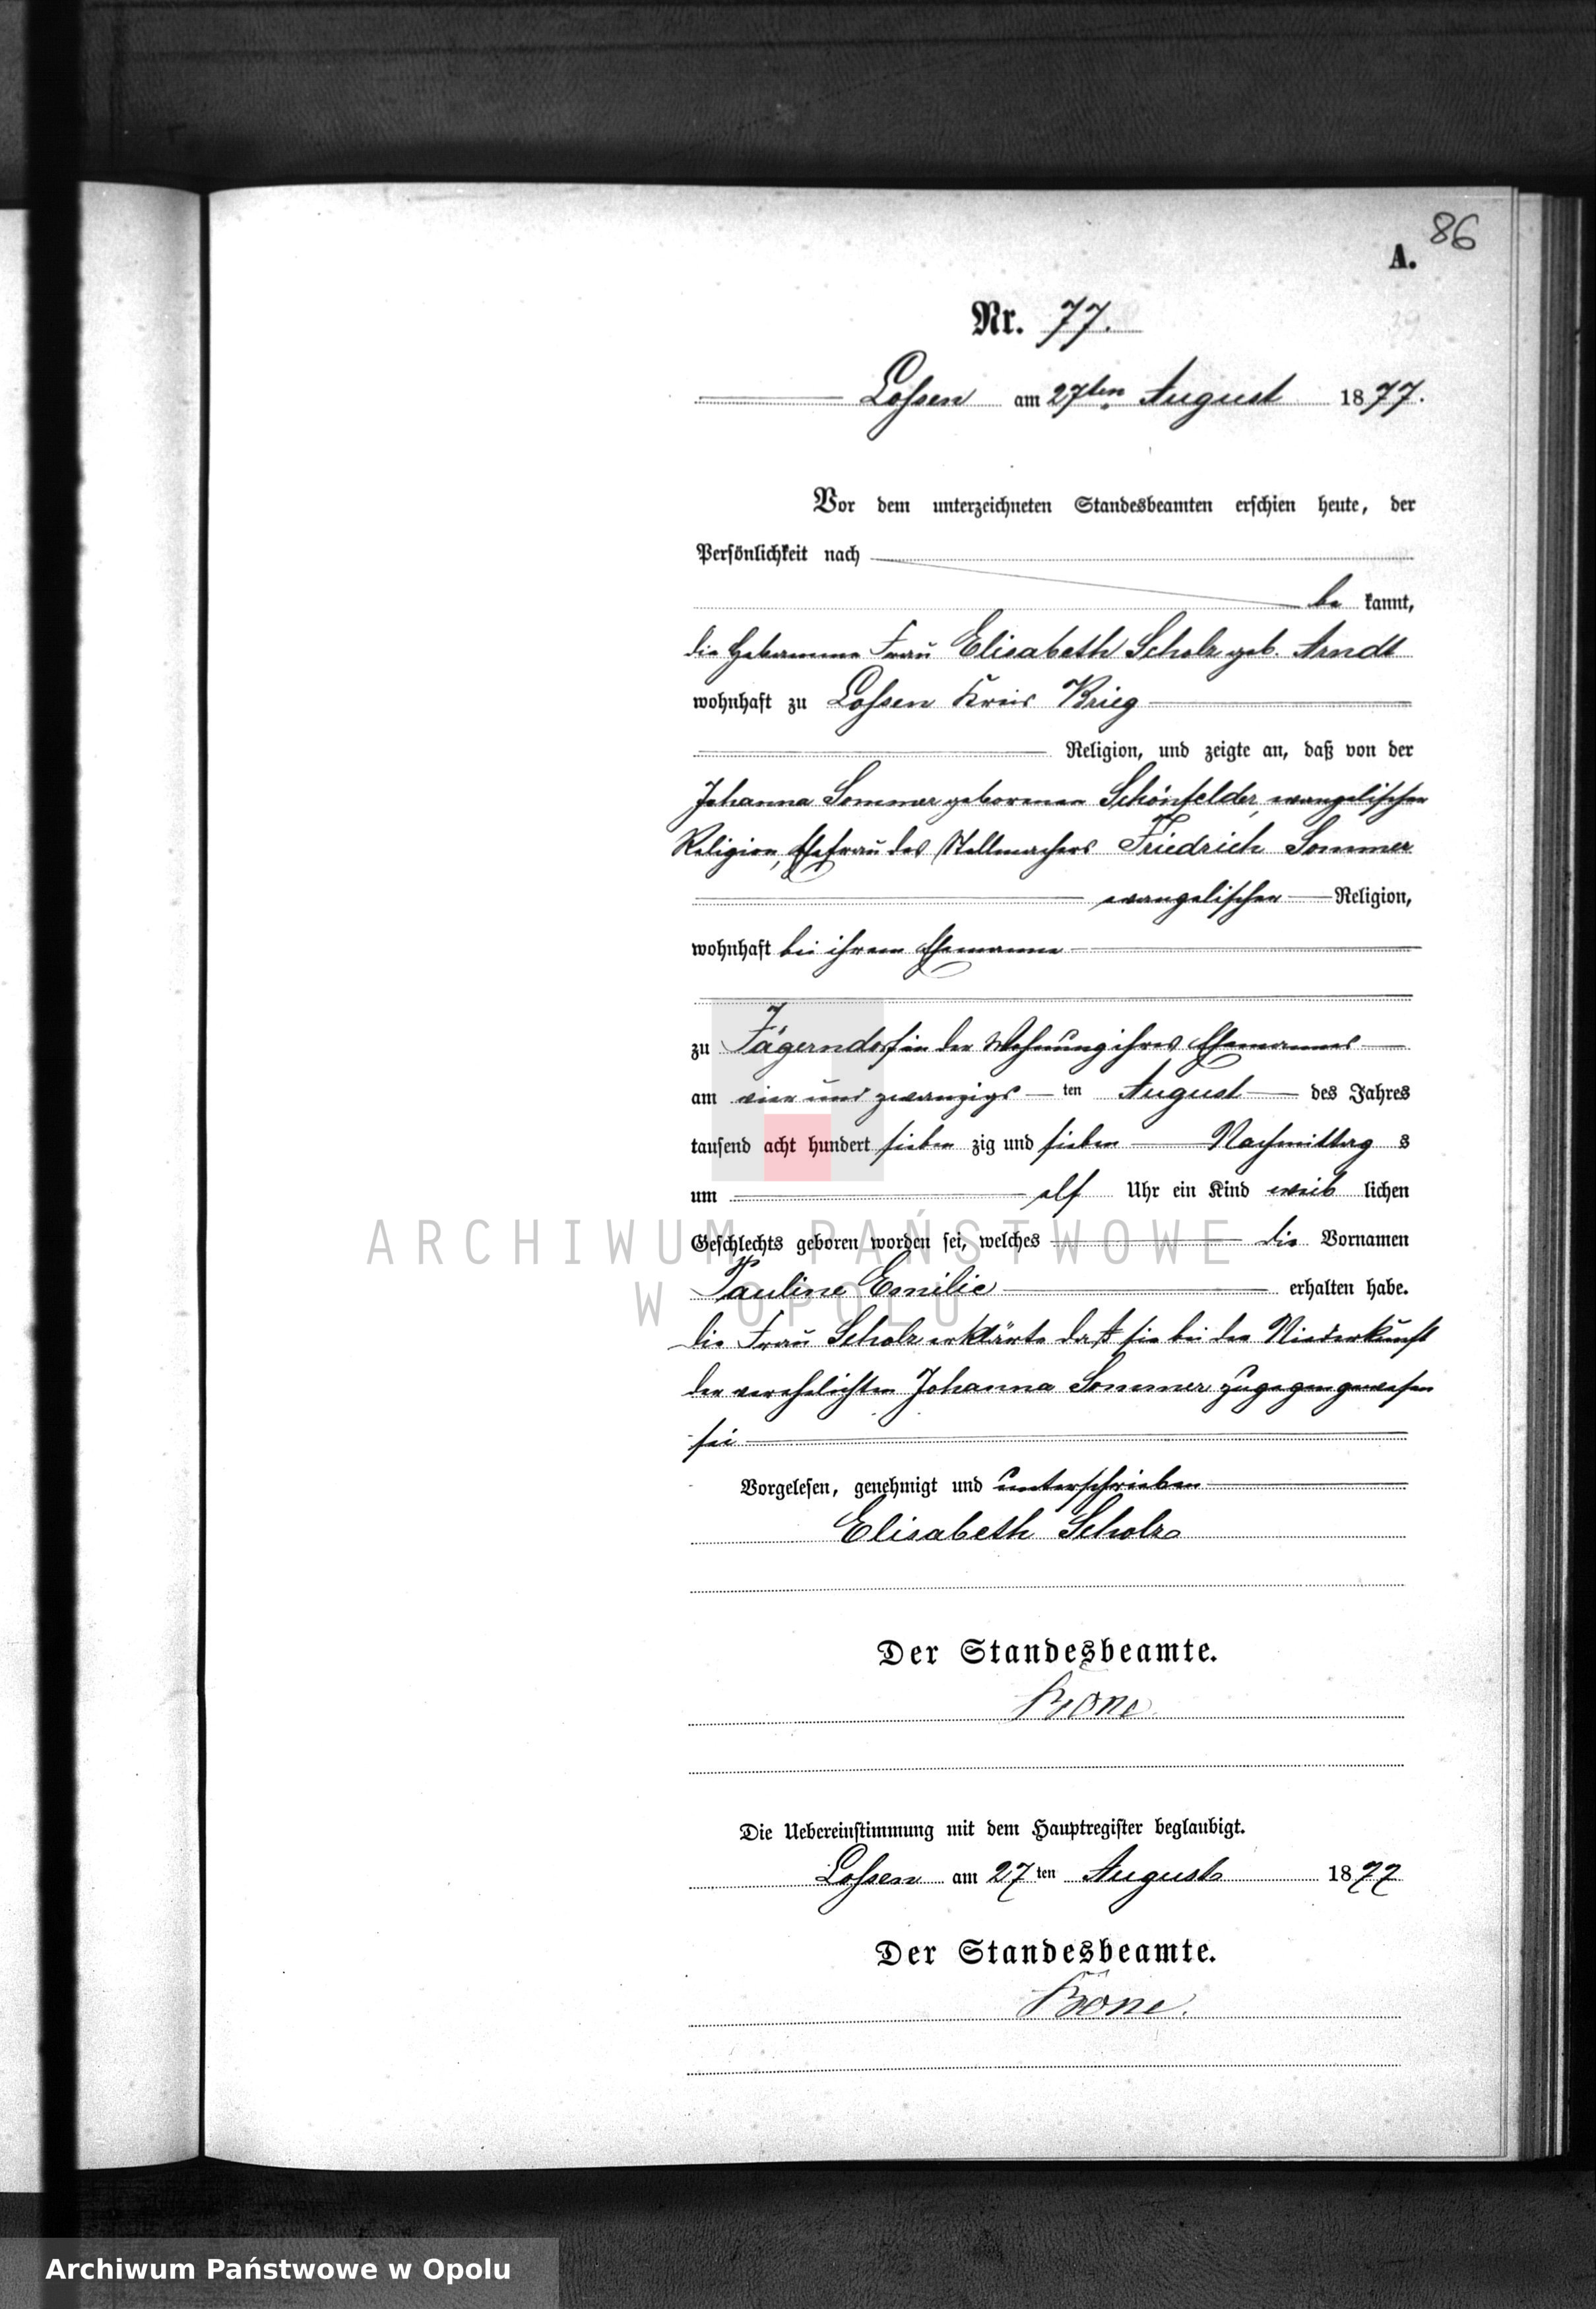 86
A.
Nr. 77.
Lossen am 27ten August 1877.
Vor dem unterzeichneten Standesbeamten erschien heute, der
Persönlichkeit nach
be kannt,
die Hebamme Frau Elisabeth Scholz geb. Arndt
wohnhaft zu Lossen Kreis Brieg
Religion, und zeigte an, daß von der
Johanna Sommer geborenen Schönfelder, evangelischer
Religion, Ehefrau des Stellmachers Friedrich Sommer
evangelischer Religion,
wohnhaft bei ihrem Ehemanne
zu Jägerndorf in der Wohnung ihres Ehemannes
am vier und zwanzigs ten August des Jahres
tausend acht hundert sieben zig und sieben Nachmittag s
um elf Uhr ein Kind weib lichen
Geschlechts geboren worden sei, welches die Vornamen
Pauline Emilie erhalten habe.
Die Frau Scholz erklärte daß sie bei der Niederkunft
der verehelichten Johanna Sommer zugegen gewesen
sei
Vorgelesen, genehmigt und unterschrieben
Elisabeth Scholz
Der Standesbeamte.
Die Uebereinstimmung mit dem Hauptregister beglaubigt.
Lossen am 27 ten August 1877
Der Standesbeamte.
ARCHIWUM PAŃSTWOWE
W OPOLU
Archiwum Państwowe w Opolu